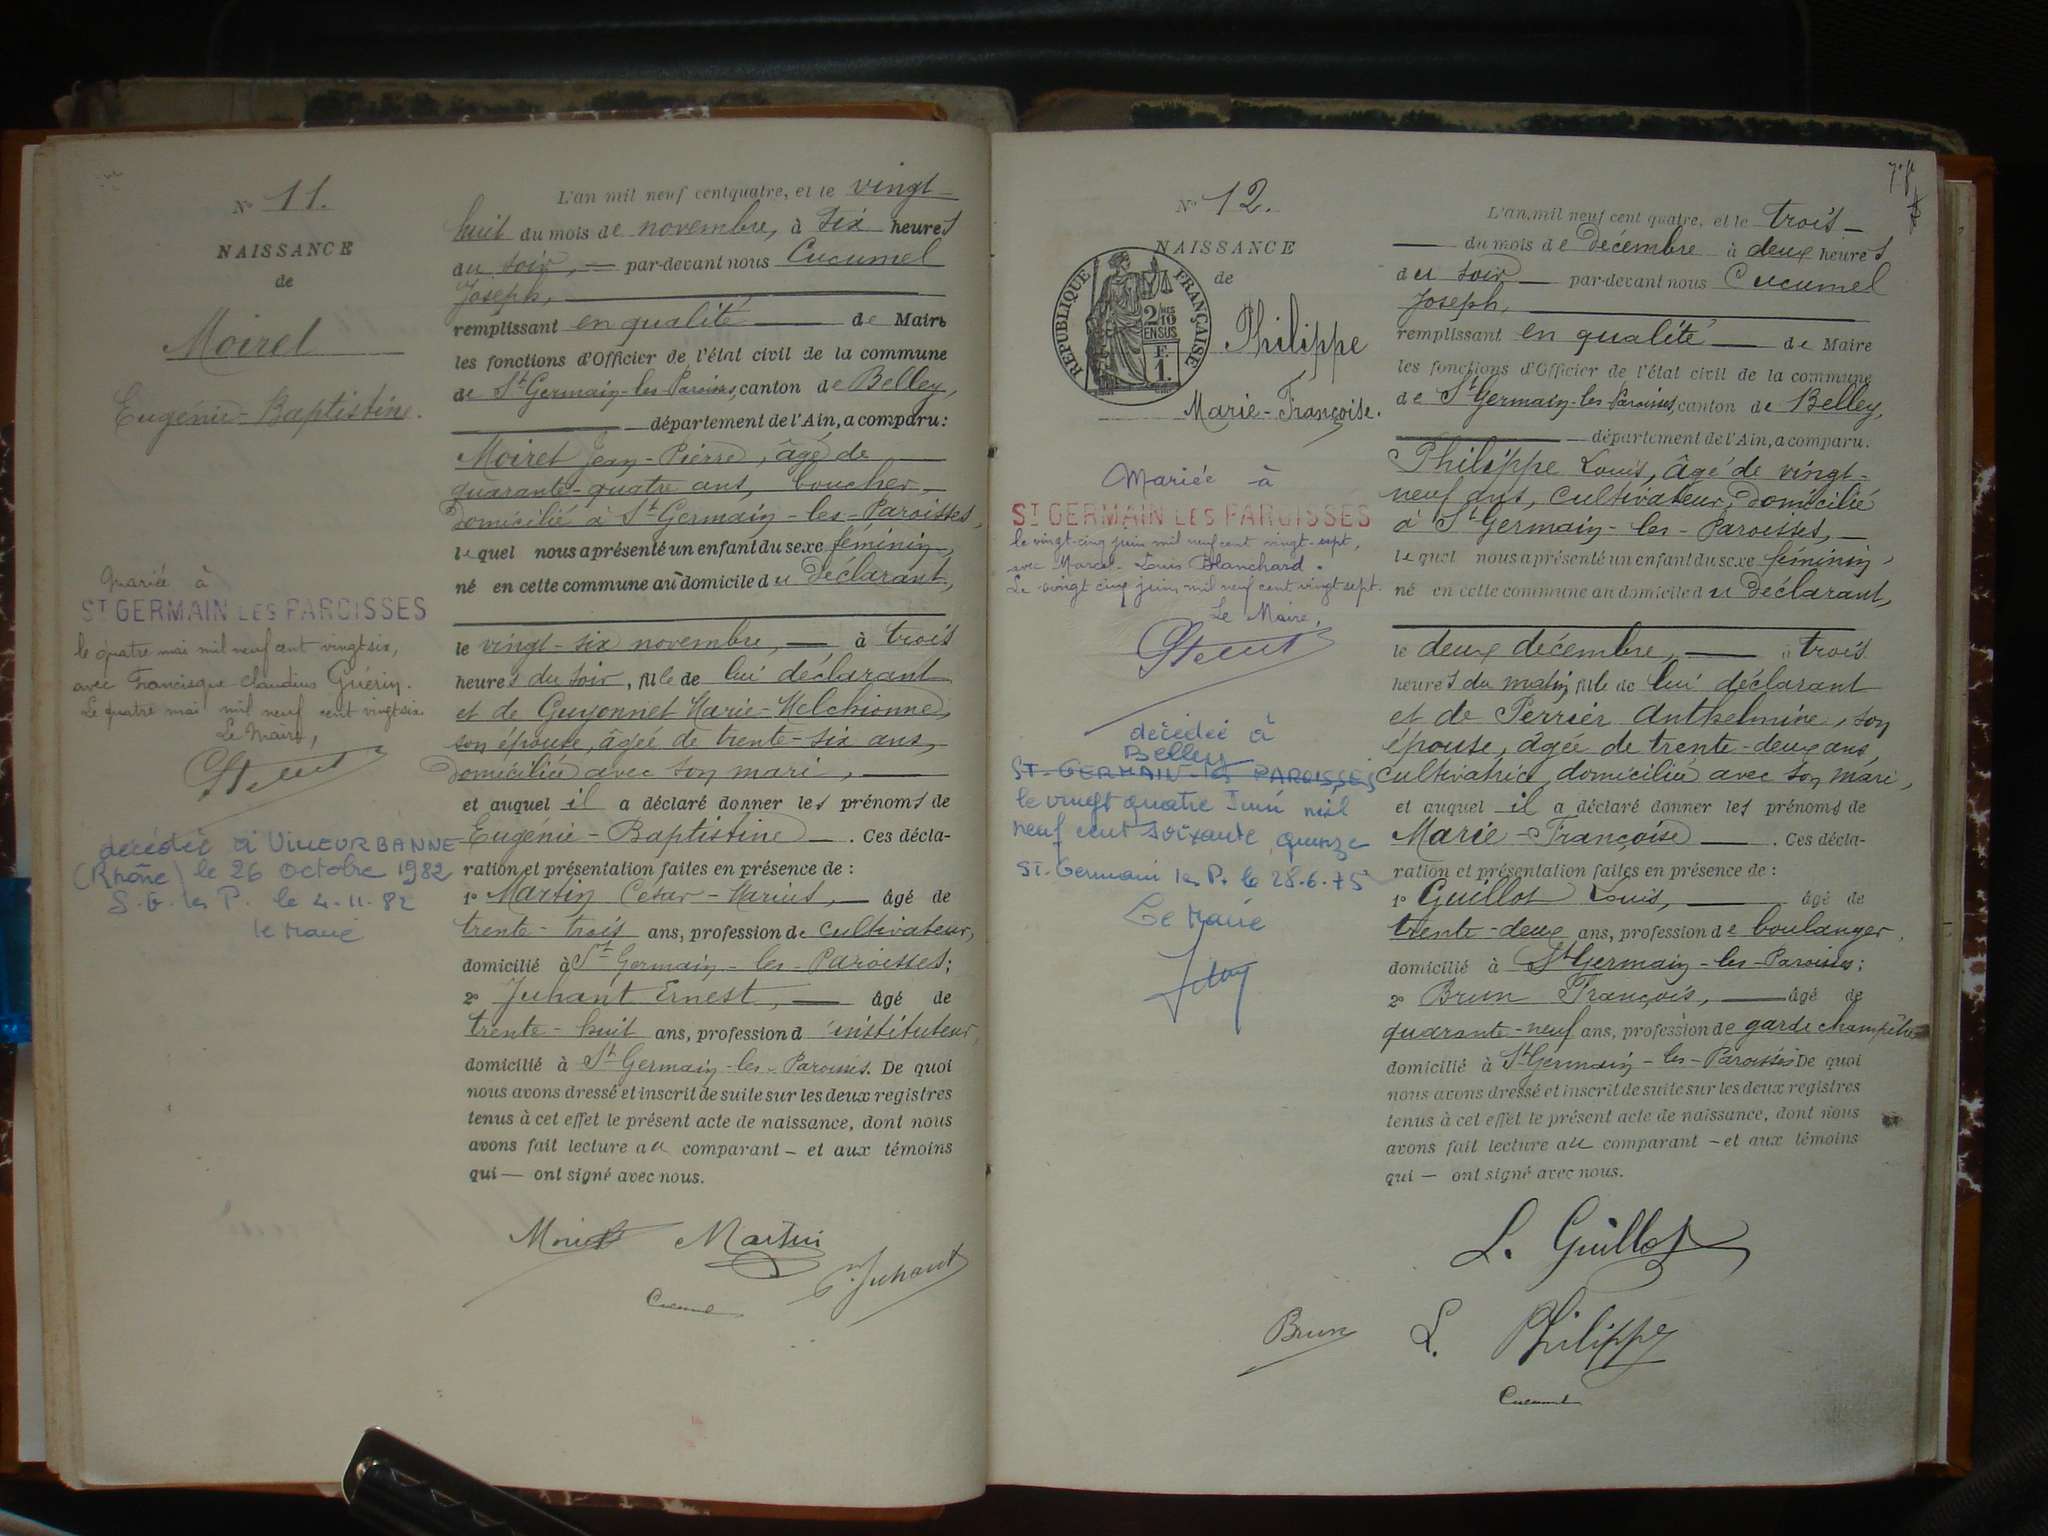 N° 11.
NAISSANCE
de
Moiret
Eugénie-Baptistine.
Mariée à
ST GERMAIN LES PAROISSES
le quatre mai mil neuf cent vingt six,
avec Francisque Claudius Guérin.
Le quatre mai mil neuf cent vingt six.
Le Maire,
décédée à VILLEURBANNE
(Rhône) le 26 octobre 1982
S.G. les P. le 4.11.82
le Maire
L'an mil neuf cent quatre, et le vingt-
huit du mois de novembre, à six heures
du soir, — par-devant nous Cucumel
Joseph,
remplissant en qualité — de Maire
les fonctions d'Officier de l'état civil de la commune
de St Germain-les-Paroisses, canton de Belley,
— département de l'Ain, a comparu:
Moiret Jean-Pierre, âgé de
quarante-quatre ans, boucher,
domicilié à St Germain-les-Paroisses,
lequel nous a présenté un enfant du sexe féminin,
né en cette commune au domicile du Déclarant,
le vingt-six novembre, — à trois
heures du soir, fille de lui déclarant
et de Guyonnet Marie-Melchionne,
son épouse, âgée de trente-six ans,
domiciliée avec son mari, —
et auquel il a déclaré donner les prénoms de
Eugénie-Baptistine —. Ces décla-
ration et présentation faites en présence de :
1° Martin César-Marius, — âgé de
trente-trois ans, profession de cultivateur,
domicilié à St Germain-les-Paroisses;
2° Juhant Ernest, — âgé de
trente-huit ans, profession d'instituteur,
domicilié à St Germain-les-Paroisses. De quoi
nous avons dressé et inscrit de suite sur les deux registres
tenus à cet effet le présent acte de naissance, dont nous
avons fait lecture au comparant — et aux témoins
qui — ont signé avec nous.
Moiret Martin
E. Juhant
Cucumel
N° 12.
NAISSANCE
de
RÉPUBLIQUE FRANÇAISE
2/10
EN SUS
F.
1.
Philippe
Marie-Françoise.
Mariée à
ST GERMAIN LES PAROISSES
le vingt-cinq juin mil neuf cent vingt-sept,
avec Marcel-Louis Blanchard.
Le vingt cinq juin mil neuf cent vingt sept.
Le Maire,
décédée à
Belley
ST-GERMAIN-les PAROISSES
le vingt quatre Juin mil
neuf cent soixante quinze
St. Germain les P. le 28.6.75
Le Maire
L'an mil neuf cent quatre, et le trois —
— du mois de décembre à deux heures
du soir — par-devant nous Cucumel
Joseph,
remplissant en qualité — de Maire
les fonctions d'Officier de l'état civil de la commune
de St Germain-les-Paroisses, canton de Belley,
— département de l'Ain, a comparu.
Philippe Louis, âgé de vingt-
neuf ans, cultivateur, domicilié
à St Germain-les-Paroisses, —
lequel nous a présenté un enfant du sexe féminin,
né en cette commune au domicile du Déclarant,
le deux décembre, — à trois
heures du matin, fille de lui déclarant
et de Perrier Anthelmine, son
épouse, âgée de trente-deux ans,
cultivatrice, domiciliée avec son mari,
et auquel il a déclaré donner les prénoms de
Marie-Françoise —. Ces décla-
ration et présentation faites en présence de :
1° Guillot Louis, — âgé de
trente-deux ans, profession de boulanger,
domicilié à St Germain-les-Paroisses;
2° Brun François, — âgé de
quarante-neuf ans, profession de garde champêtre
domicilié à St Germain-les-Paroisses De quoi
nous avons dressé et inscrit de suite sur les deux registres
tenus à cet effet le présent acte de naissance, dont nous
avons fait lecture au comparant — et aux témoins
qui — ont signé avec nous.
L. Guillot
Brun L. Philippe
Cucumel